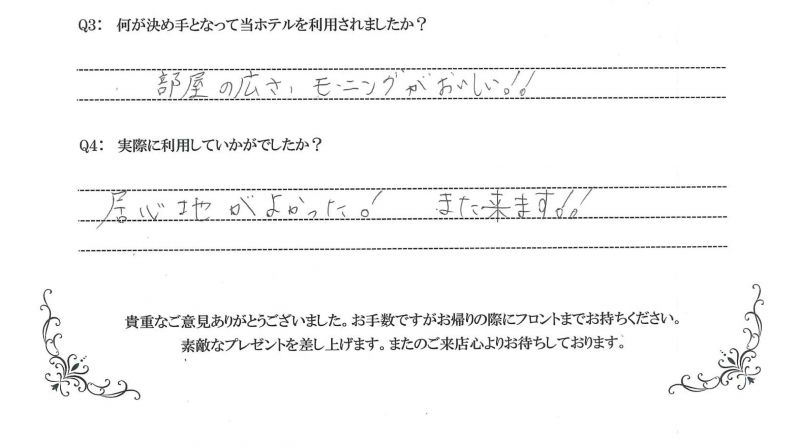 Q3: 何が決め手となって当ホテルを利用されましたか？
部屋の広さ、モーニングがおいしい!!
Q4: 実際に利用していかがでしたか？
居心地がよかった! また来ます!!
貴重なご意見ありがとうございました。お手数ですがお帰りの際にフロントまでお持ちください。
素敵なプレゼントを差し上げます。またのご来店心よりお待ちしております。